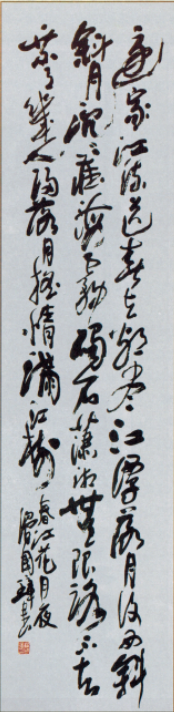 還家江水流春去欲盡江潭落月復西斜
斜月沉〻藏海霧碣石瀟湘無限路不知
乘月幾人歸落月搖情滿江樹
春江花月夜